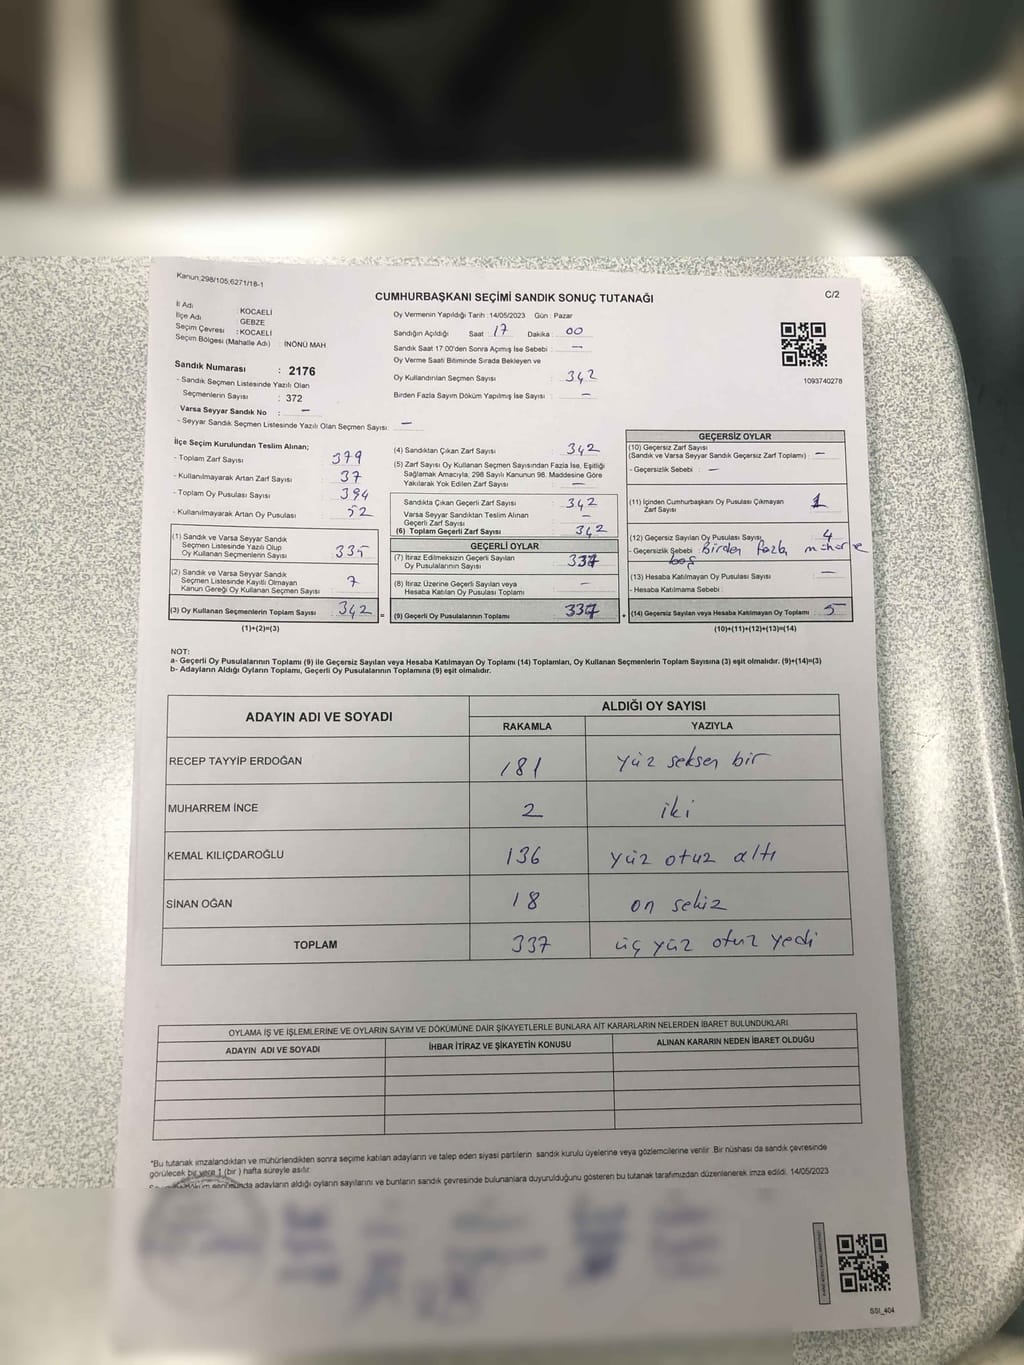 Kanun;298/105;6271/18-1
CUMHURBAŞKANI SEÇİMİ SANDIK SONUÇ TUTANAĞI
C/2
İl Adı : KOCAELİ
İlçe Adı : GEBZE
Seçim Çevresi : KOCAELİ
Seçim Bölgesi (Mahalle Adı) : İNÖNÜ MAH
Sandık Numarası : 2176
- Sandık Seçmen Listesinde Yazılı Olan
Seçmenlerin Sayısı : 372
Varsa Seyyar Sandık No : –
- Seyyar Sandık Seçmen Listesinde Yazılı Olan Seçmen Sayısı: –
Oy Vermenin Yapıldığı Tarih : 14/05/2023 Gün : Pazar
Sandığın Açıldığı Saat : 17 Dakika : 00
Sandık Saat 17:00'den Sonra Açımış İse Sebebi : –
Oy Verme Saati Bitiminde Sırada Bekleyen ve
Oy Kullandırılan Seçmen Sayısı : 342
Birden Fazla Sayım Döküm Yapılmış İse Sayısı : –
1093740278
İlçe Seçim Kurulundan Teslim Alınan;
- Toplam Zarf Sayısı : 379
- Kullanılmayarak Artan Zarf Sayısı : 37
- Toplam Oy Pusulası Sayısı : 394
- Kullanılmayarak Artan Oy Pusulası : 52
(1) Sandık ve Varsa Seyyar Sandık
Seçmen Listesinde Yazılı Olup
Oy Kullanan Seçmenlerin Sayısı : 335
(2) Sandık ve Varsa Seyyar Sandık
Seçmen Listesinde Kayıtlı Olmayan
Kanun Gereği Oy Kullanan Seçmen Sayısı : 7
(3) Oy Kullanan Seçmenlerin Toplam Sayısı : 342
(1)+(2)=(3)
(4) Sandıktan Çıkan Zarf Sayısı : 342
(5) Zarf Sayısı Oy Kullanan Seçmen Sayısından Fazla İse, Eşitliği
Sağlamak Amacıyla, 298 Sayılı Kanunun 98. Maddesine Göre
Yakılarak Yok Edilen Zarf Sayısı : –
Sandıkta Çıkan Geçerli Zarf Sayısı : 342
Varsa Seyyar Sandıktan Teslim Alınan
Geçerli Zarf Sayısı : –
(6) Toplam Geçerli Zarf Sayısı : 342
GEÇERLİ OYLAR
(7) İtiraz Edilmeksizin Geçerli Sayılan
Oy Pusulasının Sayısı : 337
(8) İtiraz Üzerine Geçerli Sayılan veya
Hesaba Katılan Oy Pusulası Toplamı : –
= (9) Geçerli Oy Pusulalarının Toplamı : 337
GEÇERSİZ OYLAR
(10) Geçersiz Zarf Sayısı
(Sandık ve Varsa Seyyar Sandık Geçersiz Zarf Toplamı) : –
- Geçersizlik Sebebi : –
(11) İçinden Cumhurbaşkanı Oy Pusulası Çıkmayan
Zarf Sayısı : 1
(12) Geçersiz Sayılan Oy Pusulası Sayısı : 4
- Geçersizlik Sebebi : Birden fazla mühür ve
boş
(13) Hesaba Katılmayan Oy Pusulası Sayısı : –
- Hesaba Katılmama Sebebi :
+ (14) Geçersiz Sayılan veya Hesaba Katılmayan Oy Toplamı : 5
(10)+(11)+(12)+(13)=(14)
NOT:
a- Geçerli Oy Pusulalarının Toplamı (9) ile Geçersiz Sayılan veya Hesaba Katılmayan Oy Toplamı (14) Toplamları, Oy Kullanan Seçmenlerin Toplam Sayısına (3) eşit olmalıdır. (9)+(14)=(3)
b- Adayların Aldığı Oyların Toplamı, Geçerli Oy Pusulalarının Toplamına (9) eşit olmalıdır.
ADAYIN ADI VE SOYADI
ALDIĞI OY SAYISI
RAKAMLA YAZIYLA
RECEP TAYYİP ERDOĞAN 181 yüz seksen bir
MUHARREM İNCE 2 iki
KEMAL KILIÇDAROĞLU 136 yüz otuz altı
SİNAN OĞAN 18 on sekiz
TOPLAM 337 üç yüz otuz yedi
OYLAMA İŞ VE İŞLEMLERİNE VE OYLARIN SAYIM VE DÖKÜMÜNE DAİR ŞİKAYETLERLE BUNLARA AİT KARARLARIN NELERDEN İBARET BULUNDUKLARI
ADAYIN ADI VE SOYADI İHBAR İTİRAZ VE ŞİKAYETİN KONUSU ALINAN KARARIN NEDEN İBARET OLDUĞU
*Bu tutanak imzalandıktan ve mühürlendikten sonra seçime katılan adayların ve talep eden siyasi partilerin sandık kurulu üyelerine veya gözlemcilerine verilir. Bir nüshası da sandık çevresinde
görülecek bir yere 1 (bir ) hafta süreyle asılır.
adayların aldığı oyların sayılarını ve bunların sandık çevresinde bulunanlara duyurulduğunu gösteren bu tutanak tarafımızdan düzenlenerek imza edildi. 14/05/2023
SSI_404